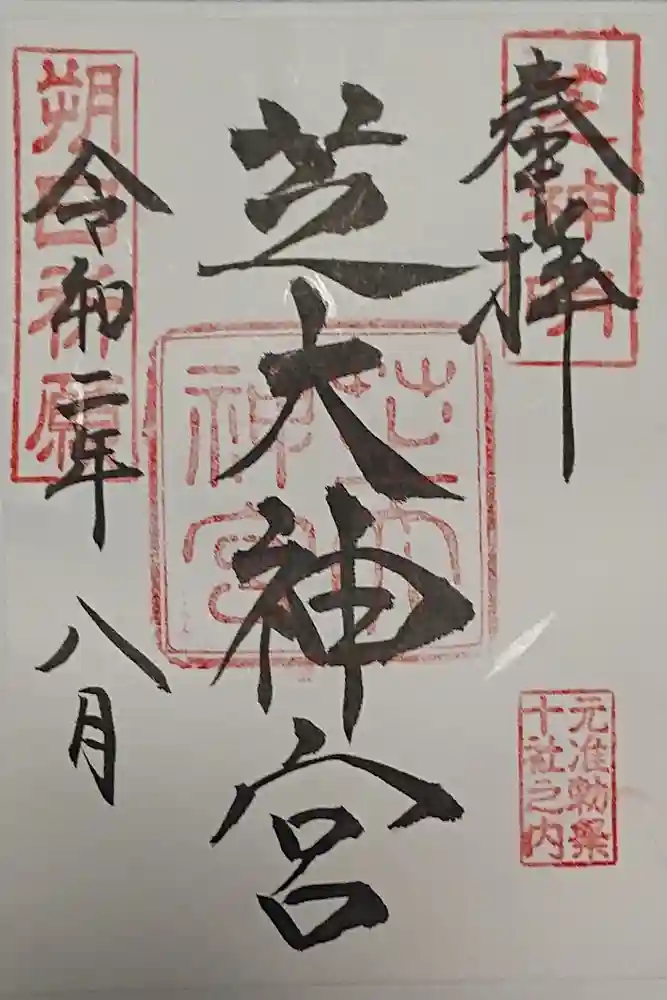 奉拝
芝神明
芝大神宮
芝大
神宮
元准勅祭
十社之内
令和二年
八月
朔日御願